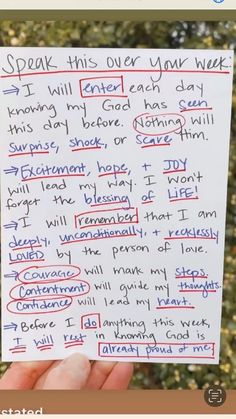 Speak this over your week:
⇒ I will enter each day
knowing my God has seen
this day before. Nothing will
surprise, shock, or scare Him.
⇒ Excitement, hope, + JOY
will lead my way. I won't
forget the blessing of LiFE!
⇒ I will remember that I am
deeply, unconditionally, + recklessly
LOVED by the person of love.
⇒ Courage will mark my steps.
Contentment will guide my thoughts.
Confidence will lead my heart.
⇒ Before I do anything this week,
I will rest in knowing God is
already proud of me!
stated